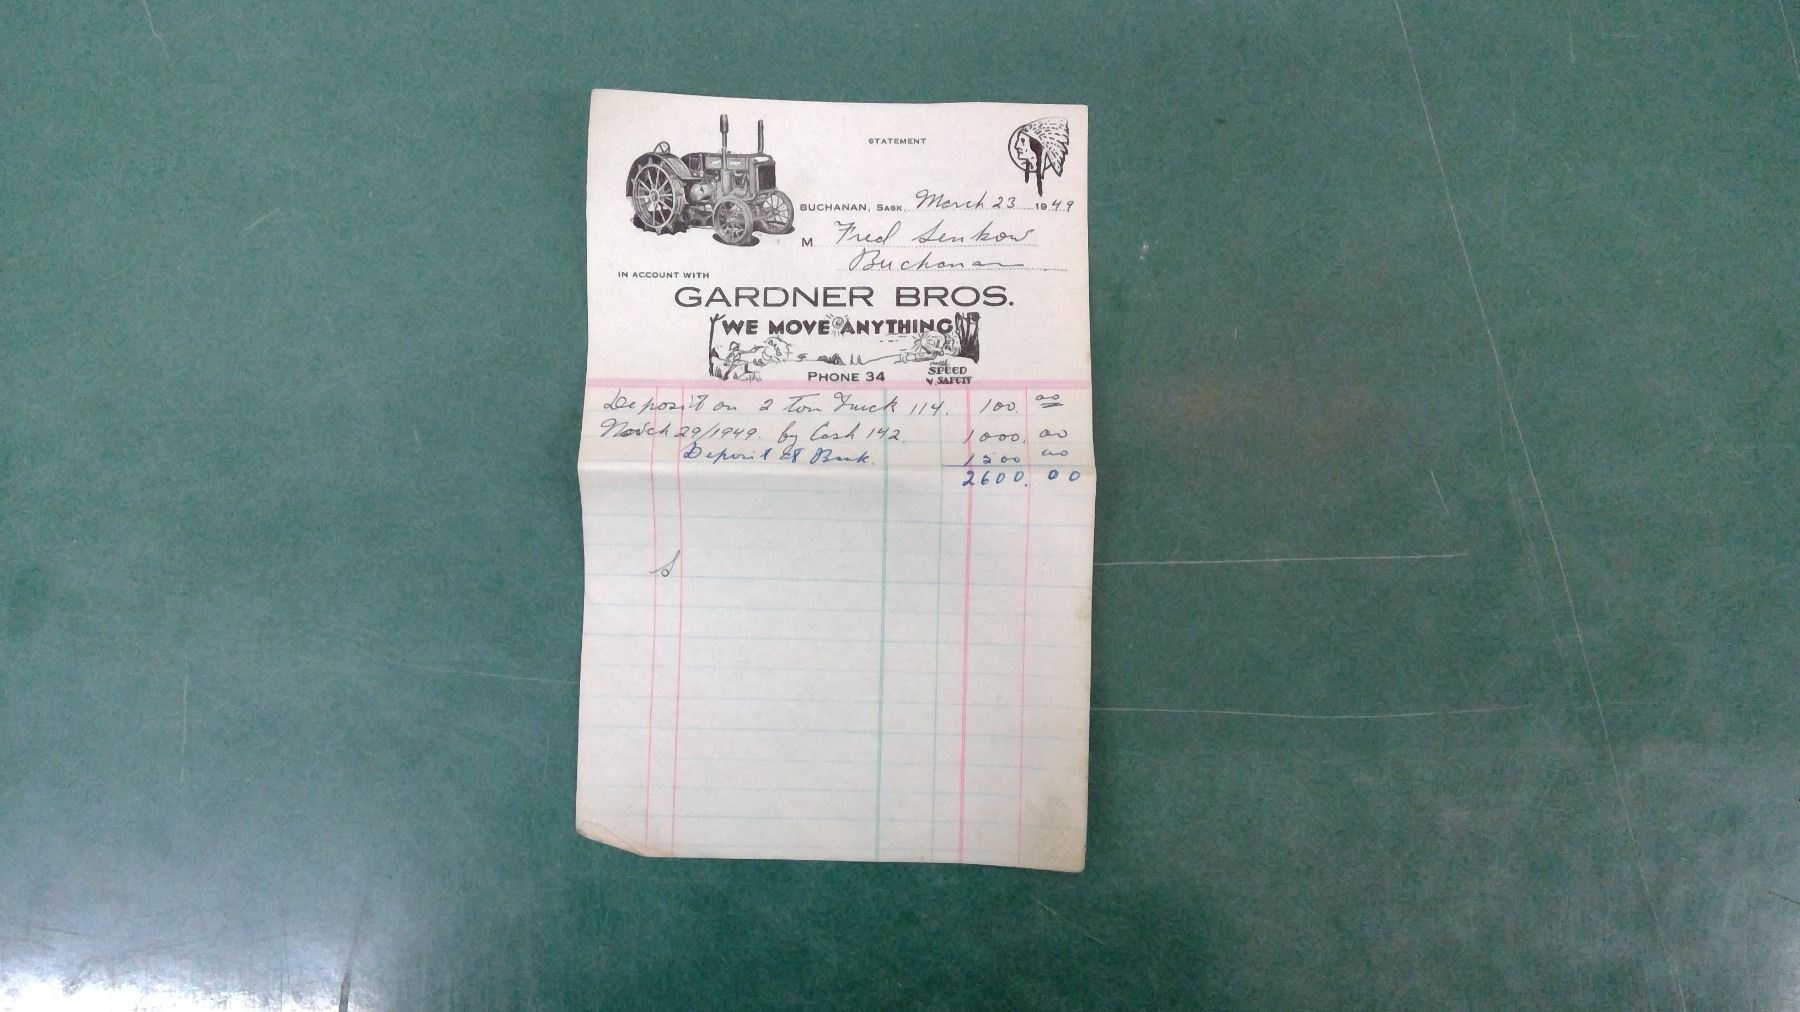 STATEMENT
BUCHANAN, SASK. March 23 1949
M Fred Senkow
Buchanan
IN ACCOUNT WITH
GARDNER BROS.
WE MOVE ANYTHING
PHONE 34
SPEED
& SAFETY
Deposit on 2 Ton Truck 114. 100. 00
March 29/1949. by Cash 142. 1000. 00
Deposit at Bank. 1500 00
2600. 00
S